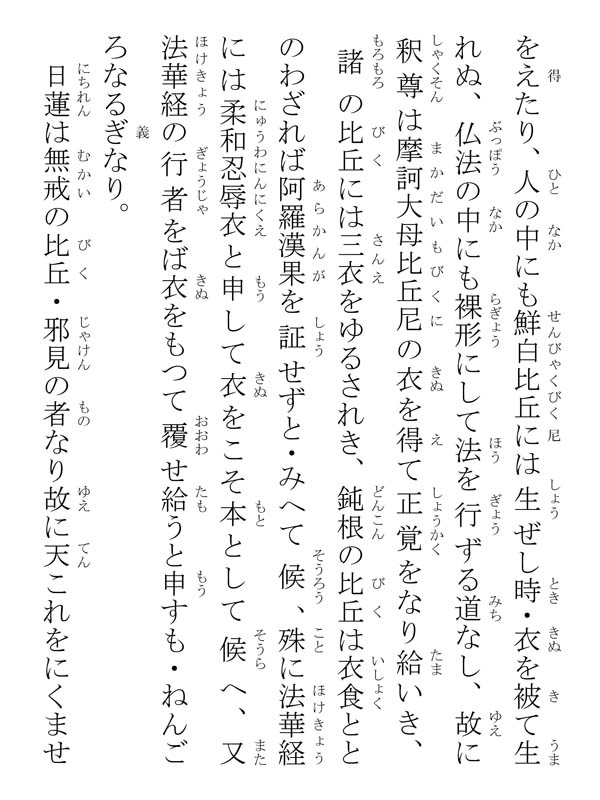 をえたり、人の中にも鮮白比丘には生ぜし時・衣を被て生
れぬ、仏法の中にも裸形にして法を行ずる道なし、故に
釈尊は摩訶大母比丘尼の衣を得て正覚をなり給いき、
諸の比丘には三衣をゆるされき、鈍根の比丘は衣食とと
のわざれば阿羅漢果を証せずと・みへて候、殊に法華経
には柔和忍辱衣と申して衣をこそ本として候へ、又
法華経の行者をば衣をもつて覆せ給うと申すも・ねんご
ろなるぎなり。
日蓮は無戒の比丘・邪見の者なり故に天これをにくませ